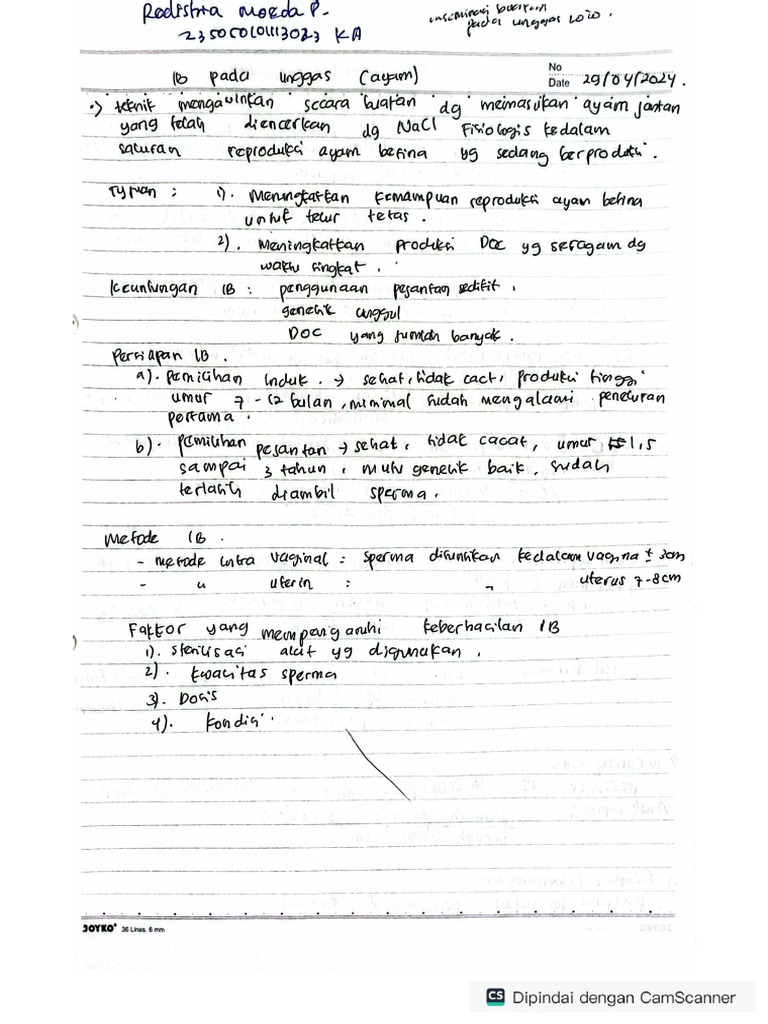 Redistira Moeda P.
inseminasi buatan
pada unggas
235050101113023 KA
No
IB pada unggas (ayam)
Date 29/04/2024.
teknik mengawinkan secara buatan dg memasukan ayam jantan
yang telah diencerkan dg NaCl Fisiologis kedalam
saluran reproduksi ayam betina yg sedang berproduksi.
Tujuan : 1). Meningkatkan kemampuan reproduksi ayam betina
untuk telur tetas.
2). Meningkatkan produksi DOC yg seragam dg
waktu singkat.
Keuntungan IB : penggunaan pejantan sedikit,
genetik unggul
DOC yang jumlah banyak.
Persiapan IB.
a). Pemilihan Induk. → sehat, tidak cact, produksi tinggi
umur 7 - 12 bulan, minimal sudah mengalami peneluran
pertama.
b). pemilihan pejantan → sehat, tidak cacat, umur 1,5
sampai 3 tahun, mutu genetik baik, sudah
terlatih diambil sperma.
Metode IB.
- metode intra vaginal : sperma disuntikan kedalam vagina ± 3cm
- " uterin : " uterus 7-8cm
Faktor yang mempengaruhi keberhasilan IB
1). sterilisasi alat yg digunakan.
2). kualitas sperma
3). Dosis
4). kondisi
JOYKO 36 Lines, 6 mm
CS Dipindai dengan CamScanner